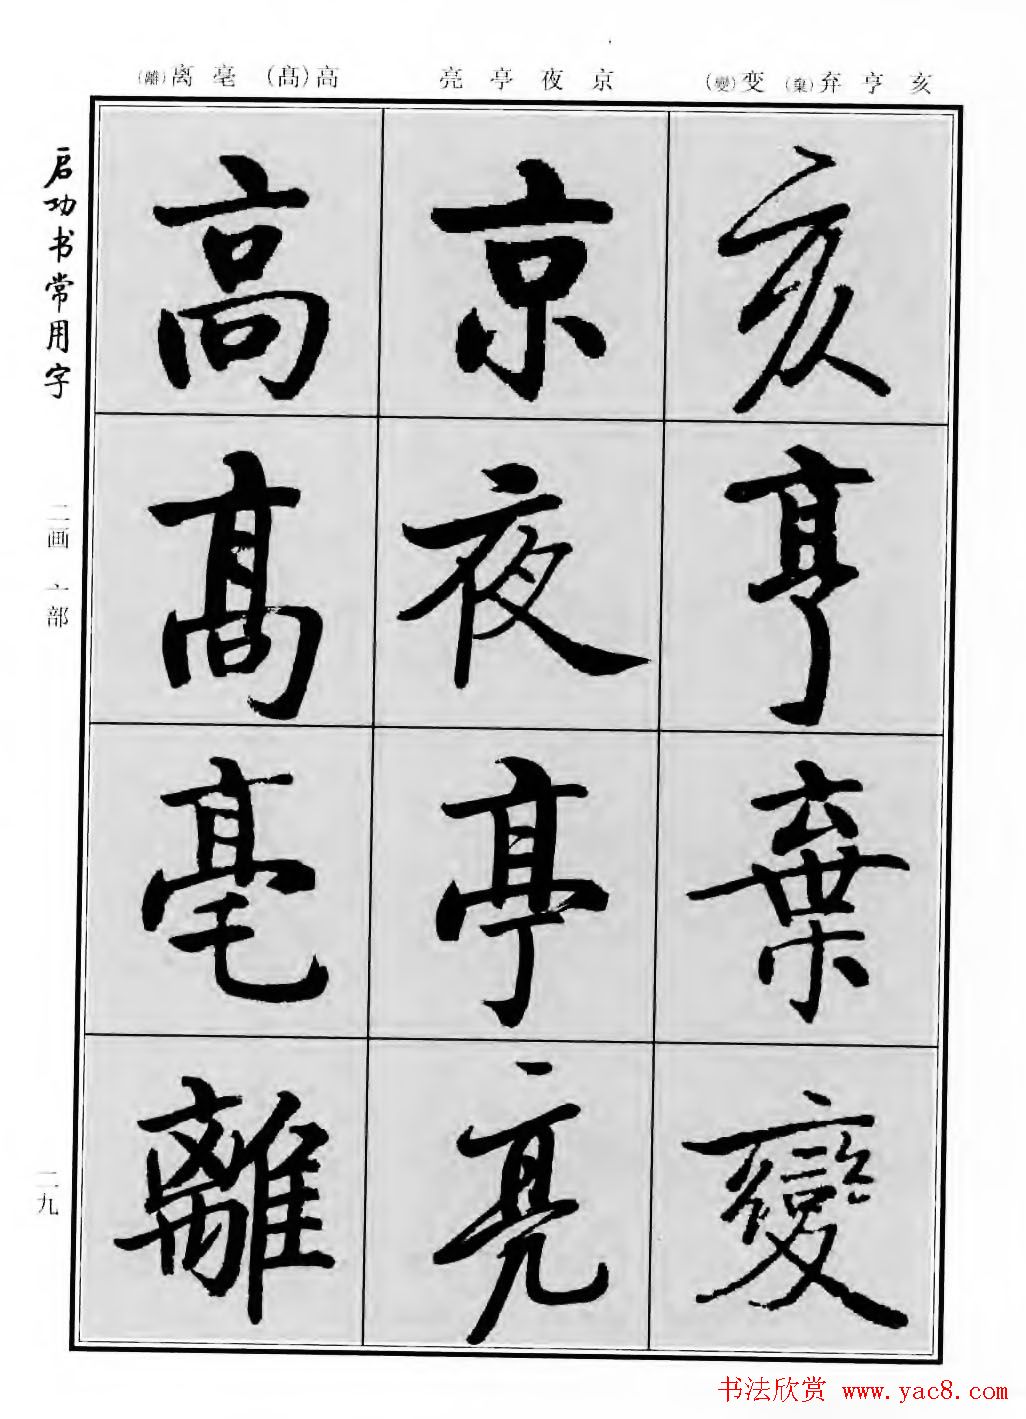 亥 亨 弃(棄) 变(變)
京 夜 亭 亮
高(髙) 毫 离(離)
亥亨棄變
京夜亭亮
高髙毫離
启功书常用字
二画 亠部
二九
书法欣赏 www.yac8.com